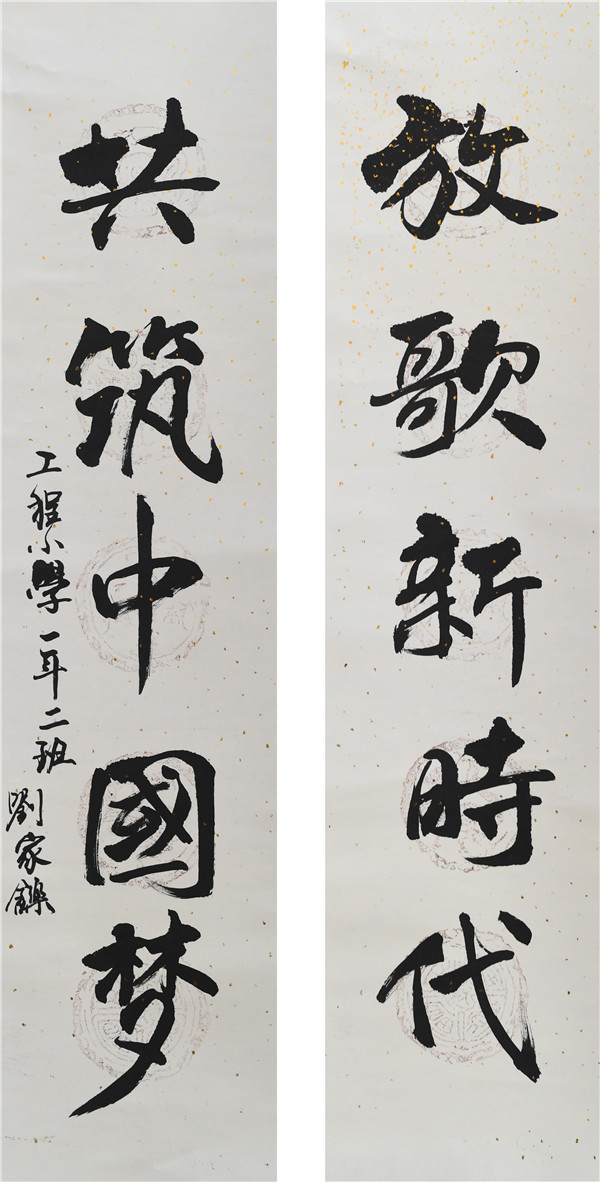 放歌新時代
共筑中國梦
工程小學一年二班
劉家鑠